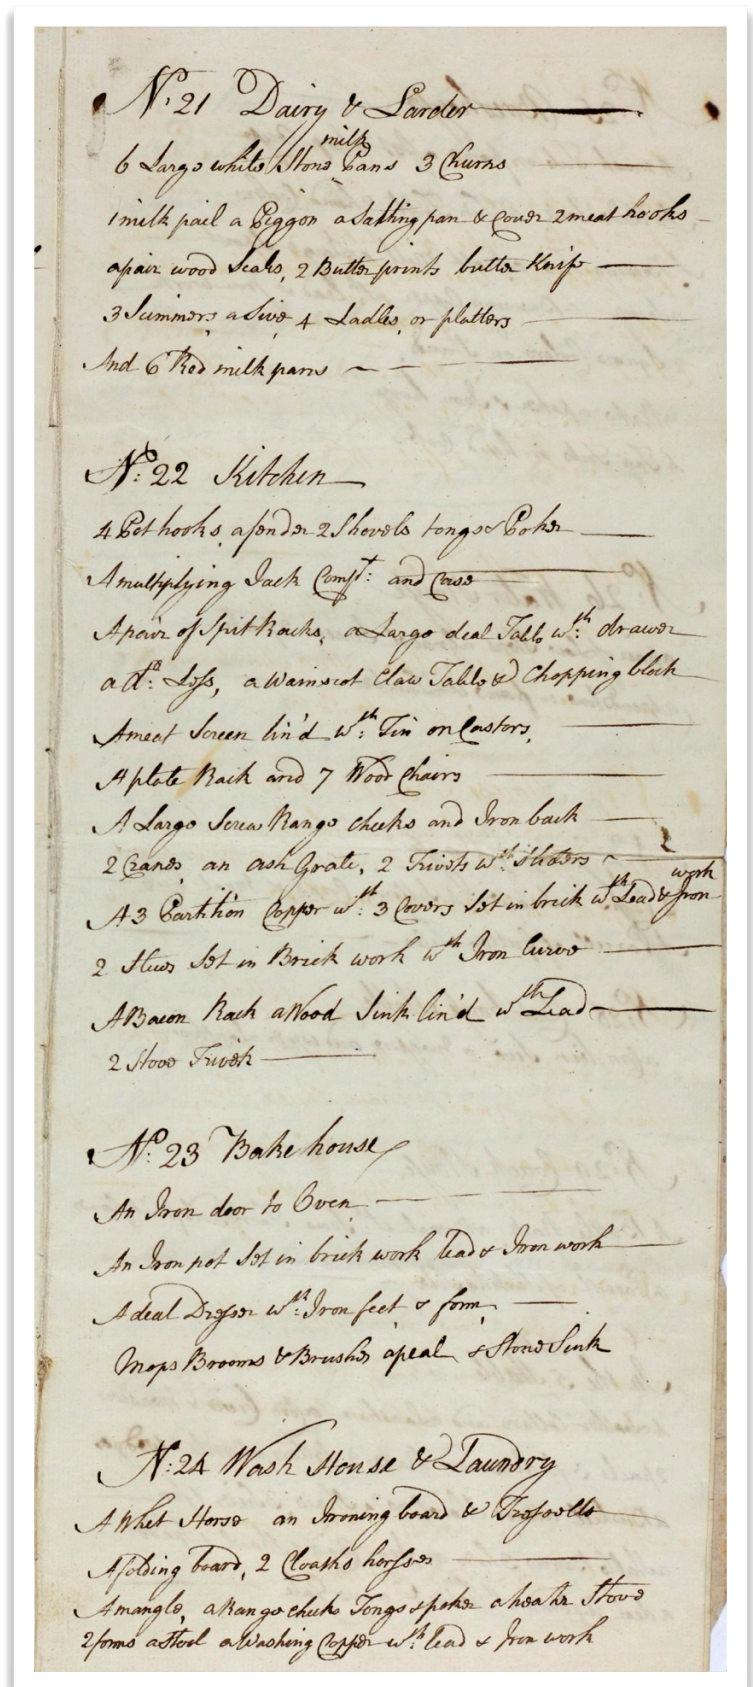 No. 21 Dairy & Larder
milk
6 Large white Stone Pans 3 Churns
1 milk pail a Piggon a Salting pan & Cover 2 meat hooks
a pair wood Scals, 2 Butter prints butter Knife
3 Scimmers a Sive 4 Ladles, or platters
And 6 Red milk pans
No: 22 Kitchen
4 Pot hooks a fender 2 Shovels tongs & Poker
A multiplying Jack Compt: and Case
A pair of Spit Racks, a Large deal Table wth: drawer
a do: Less, a wainscot Claw Table & Chopping block
A meat Screen lin'd wth: Tin on Castors,
A plate Rack and 7 Wood Chairs
A Large Screw Range cheeks and Iron back
2 Cranes, an ash Grate, 2 Trivets wth:
work
A 3 Partition Copper wth: 3 Covers Set in brick wth Lead & Iron
2 Stues Set in Brick work wth Iron Curve
A Bacon Rack a Wood Sink lin'd wth Lead
2 Stove Trivets
No: 23 Bakehouse
An Iron door to Oven
An Iron pot Set in brick work lead & Iron work
A deal Dresser wth: Iron feet & form,
Mops Brooms & Brushes a peal, & Stone Sink
No: 24 Wash House & Laundry
A Whet Horse an Ironing board & Tresells
A folding board, 2 Cloaths horsses
A mangle, a Range cheeks Tongs & poker a heatr Stove
2 forms a Stool a Washing Copper wth: lead & Iron work